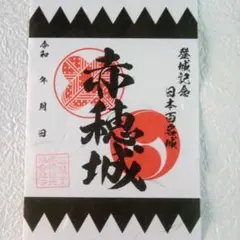 登城記念
日本百名城
赤穂城
令和　年　月　日